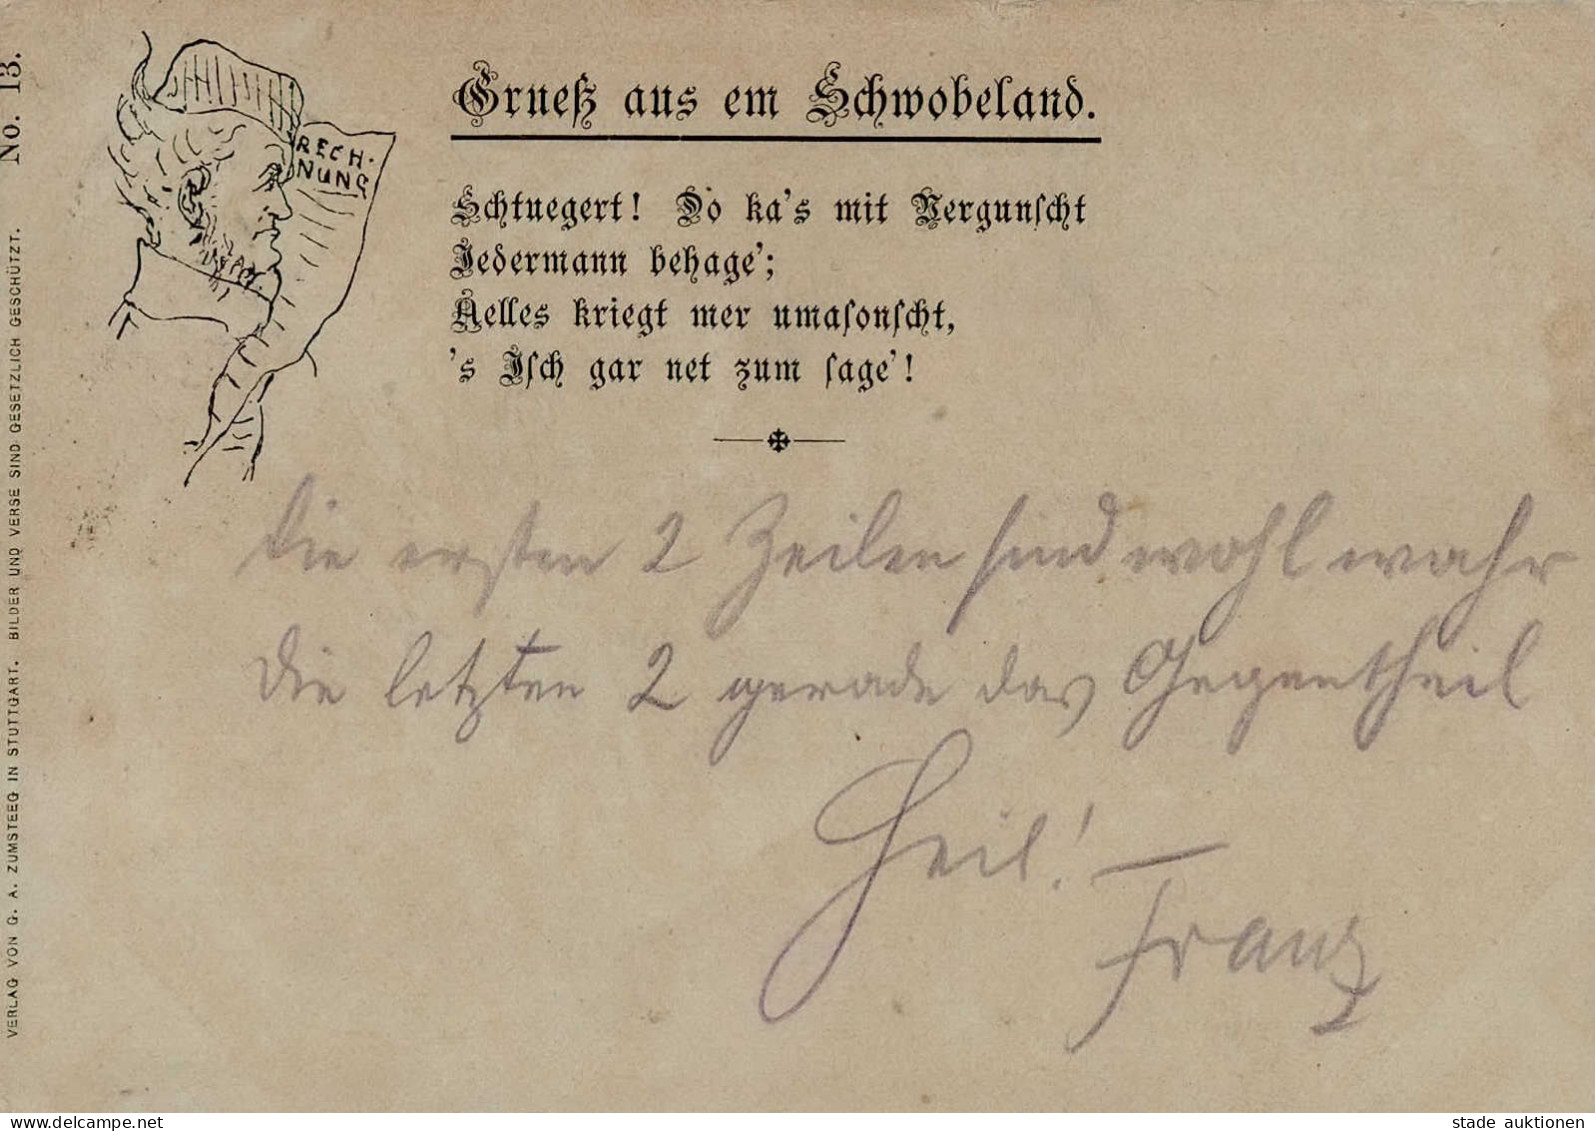 No. 13.
Grueß aus em Schwobeland.
RECH-
NUNG
Schtuegert! Do ka's mit Vergunscht
Jedermann behage';
Aelles kriegt mer umasonscht,
's Isch gar net zum sage'!
die ersten 2 Zeilen sind wohl wahr
die letzten 2 gerade das Gegentheil
Heil! —
Franz
VERLAG VON G. A. ZUMSTEEG IN STUTTGART. BILDER UND VERSE SIND GESETZLICH GESCHÜTZT.
www.delcampe.net
stade auktionen